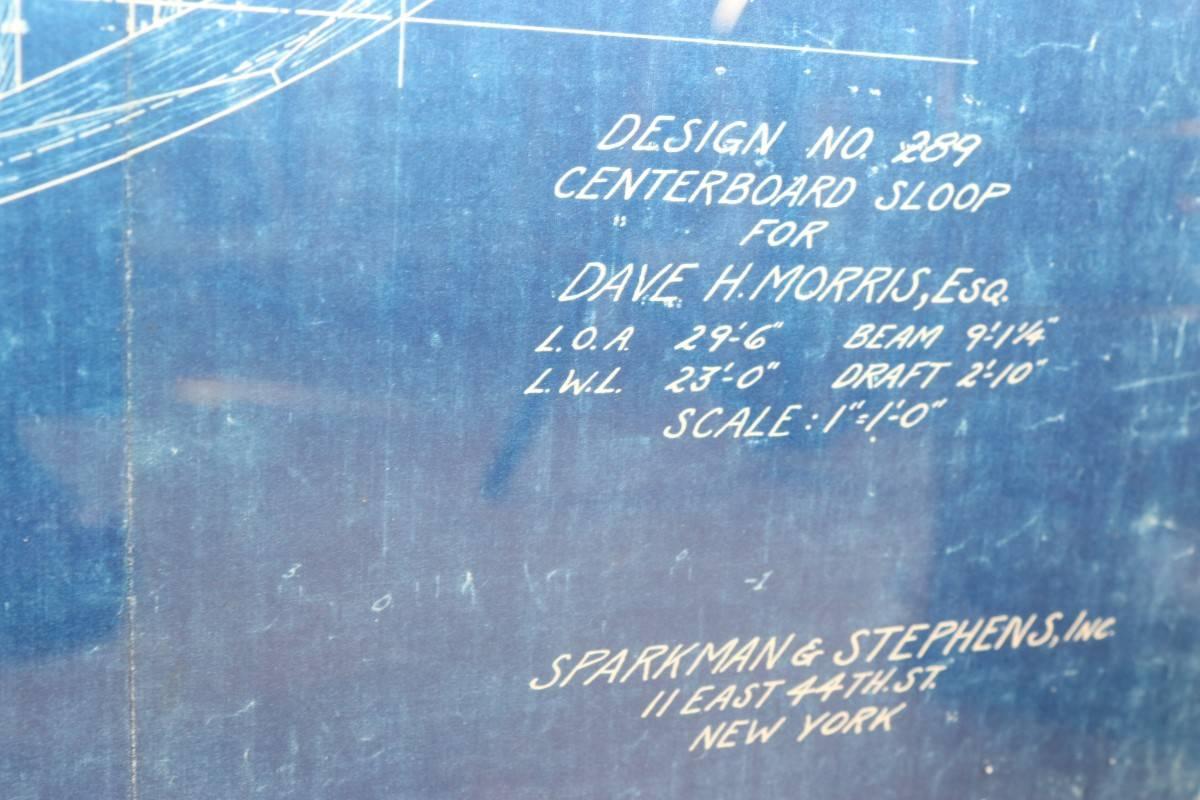 DESIGN NO. 289
CENTERBOARD SLOOP
" FOR
DAVE H. MORRIS, ESQ.
L.O.A. 29'-6" BEAM 9'-1¼"
L.W.L. 23'-0" DRAFT 2'-10"
SCALE: 1"=1'-0"
3 0 0 -1
SPARKMAN & STEPHENS, INC.
11 EAST 44TH. ST.
NEW YORK